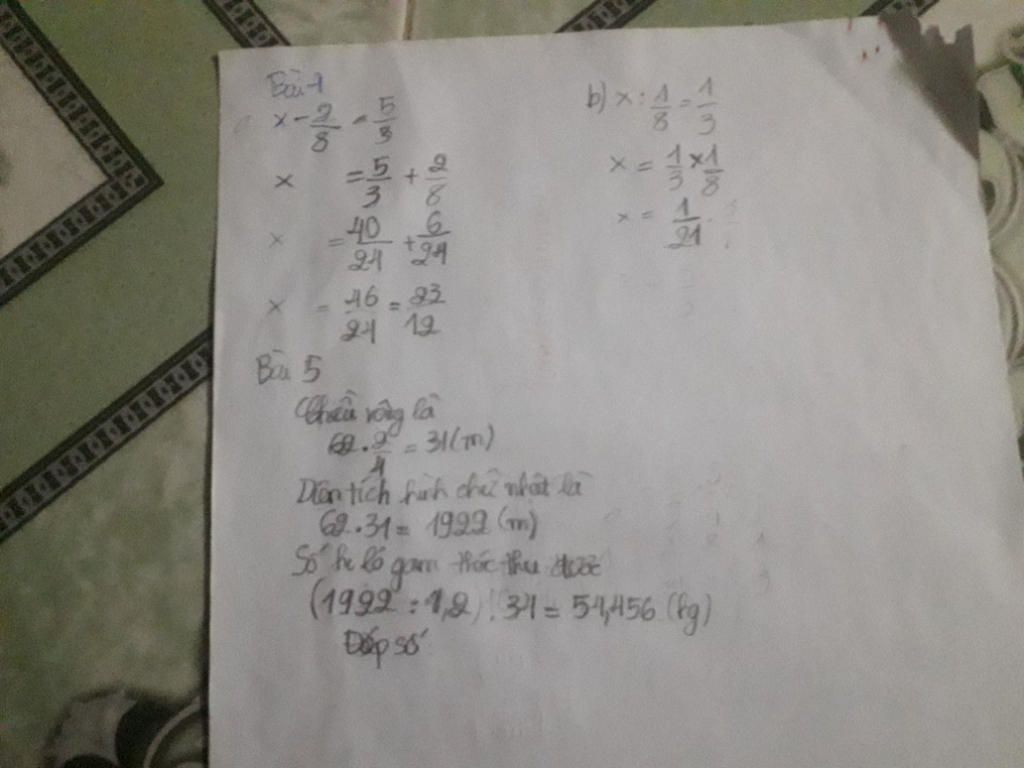 Bài 1
x - 2/8 = 5/3
x = 5/3 + 2/8
x = 40/24 + 6/24
x = 46/24 = 23/12
b) x : 1/8 = 1/3
x = 1/3 × 1/8
x = 1/21
Bài 5
Chiều rộng là
62 . 2/4 = 31 (m)
Diện tích hình chữ nhật là
62 . 31 = 1922 (m)
Số ki lô gam thóc thu được
(1922 : 1,2) . 34 = 54,456 (kg)
Đáp số